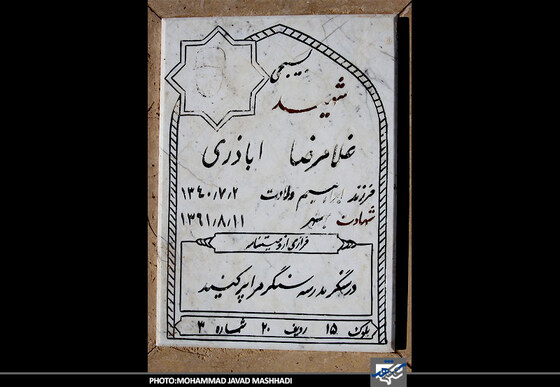 بسیجی
شهید
غلامرضا اباذری
فرزند ابراهیم ولادت ۱۳۴۰/۷/۲
شهادت بوشهر ۱۳۶۱/۸/۱۱
فرازی از وصیتنامه
در سنگر مدرسه سنگر مرا پر کنید
بلوک ۱۵ ردیف ۲۰ شماره ۳
PHOTO:MOHAMMAD JAVAD MASHHADI